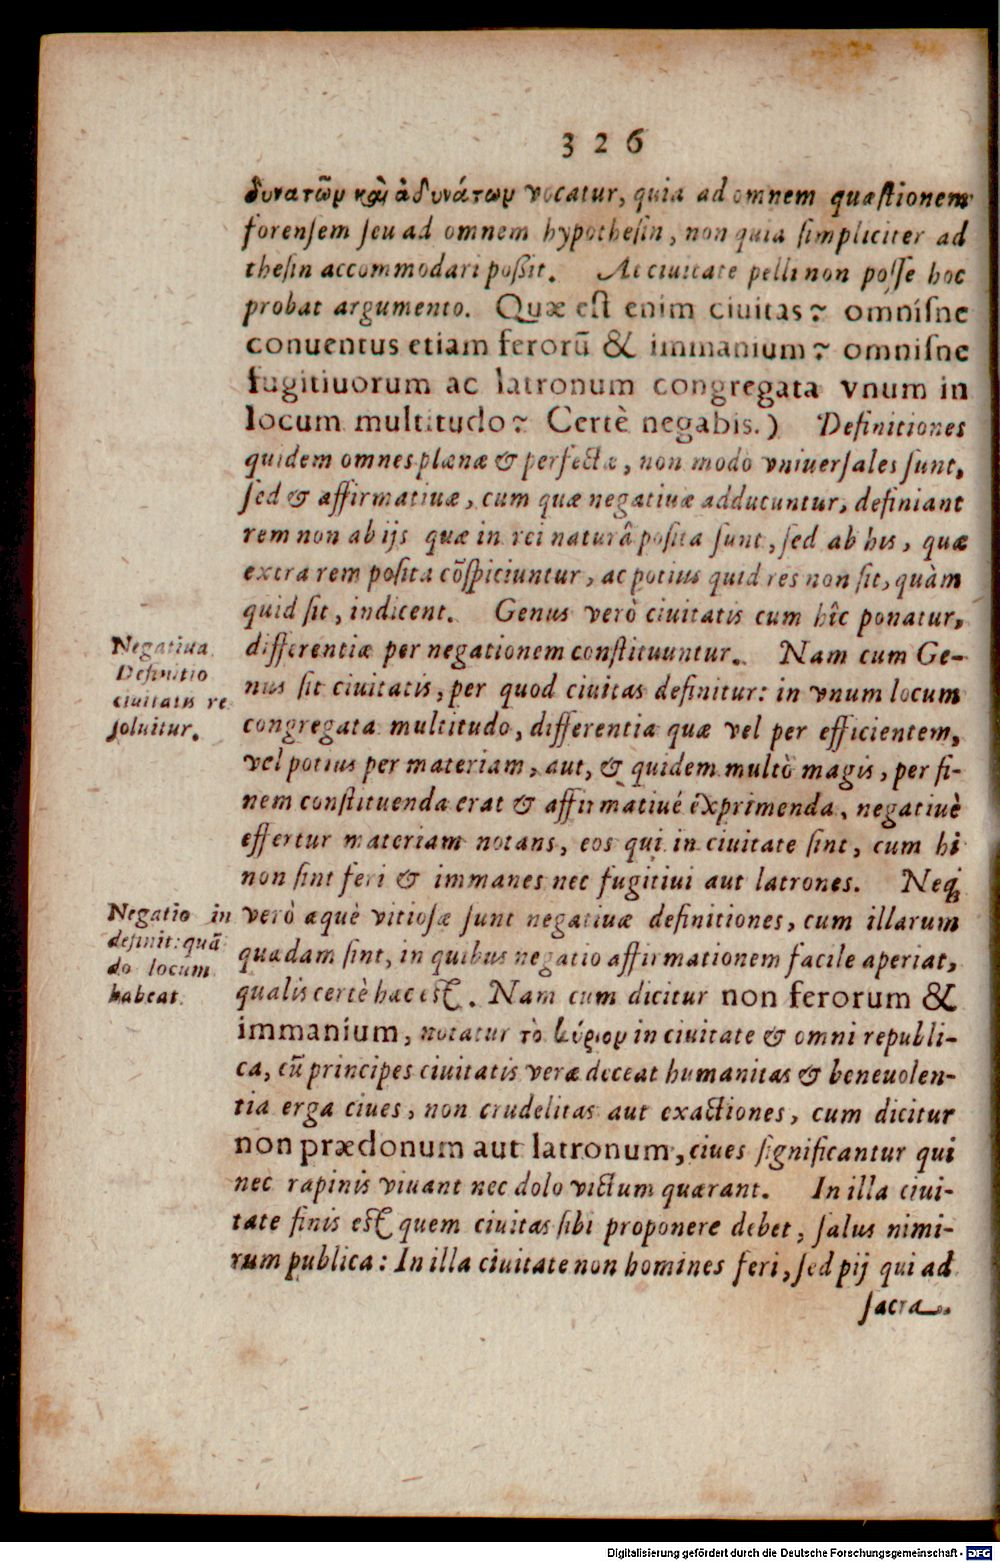 326
δυνατῶν καὶ ἀδυνάτων vocatur, quia ad omnem quæstionem
forensem seu ad omnem hypothesin, non quia simpliciter ad
thesin accommodari poßit. At ciuitate pelli non posse hoc
probat argumento. Quæ est enim ciuitas? omnísne
conuentus etiam ferorũ & immanium? omnisne
fugitiuorum ac latronum congregata vnum in
locum multitudo? Certè negabis.) Definitiones
quidem omnes plænæ & perfectæ, non modo vniuersales sunt,
sed & affirmatiuæ, cum quæ negatiuæ adducuntur, definiant
rem non ab ijs quæ in rei naturâ posita sunt, sed ab his, quæ
extra rem posita cõspiciuntur, ac potius quid res non sit, quàm
quid sit, indicent. Genus verò ciuitatis cum hîc ponatur,
differentiæ per negationem constituuntur. Nam cum Ge-
nus sit ciuitatis, per quod ciuitas definitur: in vnum locum
congregata multitudo, differentia quæ vel per efficientem,
vel potius per materiam, aut, & quidem multò magis, per fi-
nem constituenda erat & affirmatiué exprimenda, negatiuè
effertur materiam notans, eos qui in ciuitate sint, cum hi
non sint feri & immanes nec fugitiui aut latrones. Neq;
verò æquè vitiosæ sunt negatiuæ definitiones, cum illarum
quædam sint, in quibus negatio affirmationem facile aperiat,
qualis certè hæc est. Nam cum dicitur non ferorum &
immaníum, notatur τὸ κύριον in ciuitate & omni republi-
ca, cũ principes ciuitatis veræ deceat humanitas & beneuolen-
tia erga ciues, non crudelitas aut exactiones, cum dicitur
non prædonum aut latronum, ciues significantur qui
nec rapinis viuant nec dolo victum quærant. In illa ciui-
tate finis est quem ciuitas sibi proponere debet, salus nimi-
rum publica: In illa ciuitate non homines feri, sed pij qui ad
sacra
Negatiua
Definitio
ciuitatis re
soluitur.
Negatio in
definit: quã
do locum
habeat.
Digitalisierung gefördert durch die Deutsche Forschungsgemeinschaft - DFG